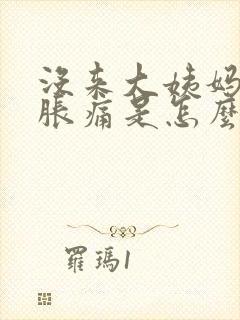 沒来大姨妈
脹痛是怎麼
羅瑪1